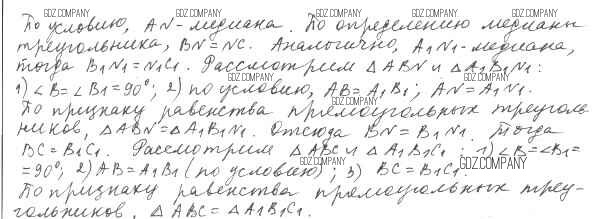 По условию, AN - медиана. По определению медианы
треугольника, BN = NC. Аналогично, A1N1 - медиана,
тогда B1N1 = N1C1. Рассмотрим △ABN и △A1B1N1:
1) ∠B = ∠B1 = 90°; 2) по условию, AB = A1B1; AN = A1N1.
По признаку равенства прямоугольных треуголь-
ников, △ABN = △A1B1N1. Отсюда BN = B1N1. Тогда
BC = B1C1. Рассмотрим △ABC и △A1B1C1: 1) ∠B = ∠B1 =
= 90°; 2) AB = A1B1 (по условию); 3) BC = B1C1.
По признаку равенства прямоугольных треу-
гольников, △ABC = △A1B1C1.
GDZ.COMPANY
GDZ.COMPANY
GDZ.COMPANY
GDZ.COMPANY
GDZ.COMPANY
GDZ.COMPANY
GDZ.COMPANY
GDZ.COMPANY
GDZ.COMPANY
GDZ.COMPANY